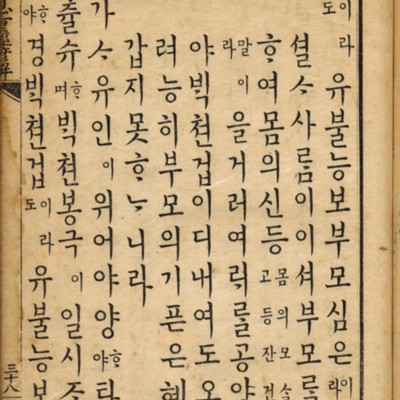 이라도유불능보부모심은이라
셜ᄉᆞ사ᄅᆞᆷ이이셔부모ᄅᆞᆯ
ᄒᆞ여몸의신등몸의모슬고등잔
말이라을거러여ᄅᆡᄅᆞᆯ공양
야ᄇᆡᆨ쳔겁이디내여도오
려능히부모의기픈은혜
갑지못ᄒᆞᄂᆞ니라
가ᄉᆞ유인이위어야양ᄒᆞ야타
츌슈ᄒᆞ며ᄇᆡᆨ쳔봉극이일시조
ᄒᆞ야경ᄇᆡᆨ쳔겁이라도유불능보
三十八